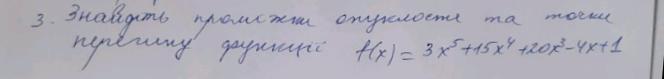 3. Знайдіть проміжки опуклості та точки
перегину функції f(x) = 3x⁵+15x⁴+20x³-4x+1